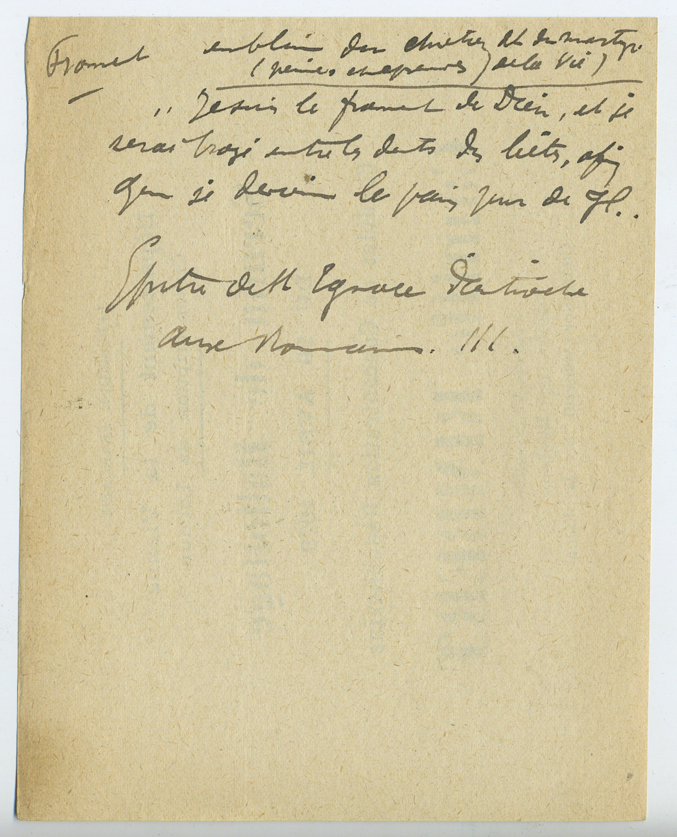 Froment emblème du chrétien et du martyr
(peines et épreuves de la vie)
,, Je suis le froment de Dieu, et je
serai broyé entre les dents des bêtes, afin
que je devienne le pain pur de JC..
Epitre de St Ignace d'Antioche
aux Romains. III.